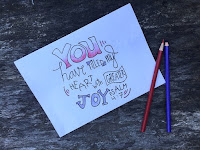 YOU
have filled my
HEART with GREATER
JOY PSALM
4:7